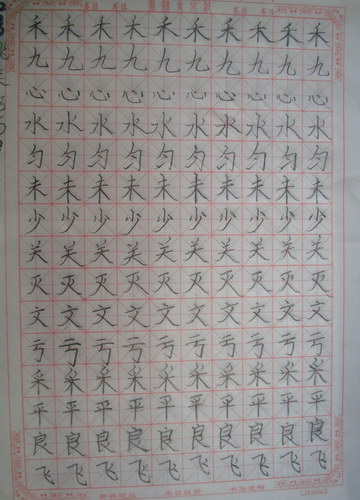 禾禾禾禾禾禾禾禾禾禾
九九九九九九九九九九
心心心心心心心心心心
水水水水水水水水水水
匀匀匀匀匀匀匀匀匀匀
未未未未未未未未未未
少少少少少少少少少少
关关关关关关关关关关
灭灭灭灭灭灭灭灭灭灭
文文文文文文文文文文
亏亏亏亏亏亏亏亏亏亏
采采采采采采采采采采
平平平平平平平平平平
良良良良良良良良良良
飞飞飞飞飞飞飞飞飞飞